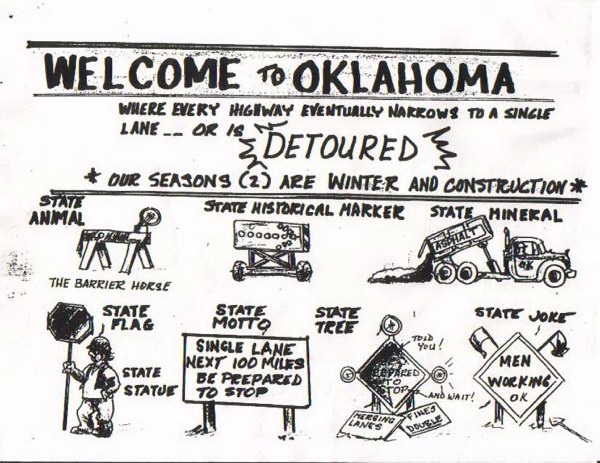 WELCOME TO OKLAHOMA
WHERE EVERY HIGHWAY EVENTUALLY NARROWS TO A SINGLE
LANE -- OR IS DETOURED
* OUR SEASONS (2) ARE WINTER AND CONSTRUCTION *
STATE
ANIMAL
THE BARRIER HORSE
STATE HISTORICAL MARKER
STATE MINERAL
ASPHALT
OK
STATE
FLAG
STATE
STATUE
STATE
MOTTO
SINGLE LANE
NEXT 100 MILES
BE PREPARED
TO STOP
STATE
TREE
TOLD
YOU!
PREPARED
TO
STOP
AND WAIT!
MERGING
LANES
FINES
DOUBLE
STATE JOKE
MEN
WORKING
OK